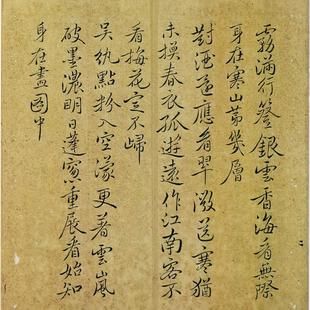 霧滿行簦銀雲香海看無際
身在寒山第幾層
對酒還應看翠微送寒猶
未換春衣孤遊遠作江南客不
看梅花定不歸
吳紈點粉入空濛更著雲嵐
破墨濃明日蓬窗重展看始知
身在畫圖中